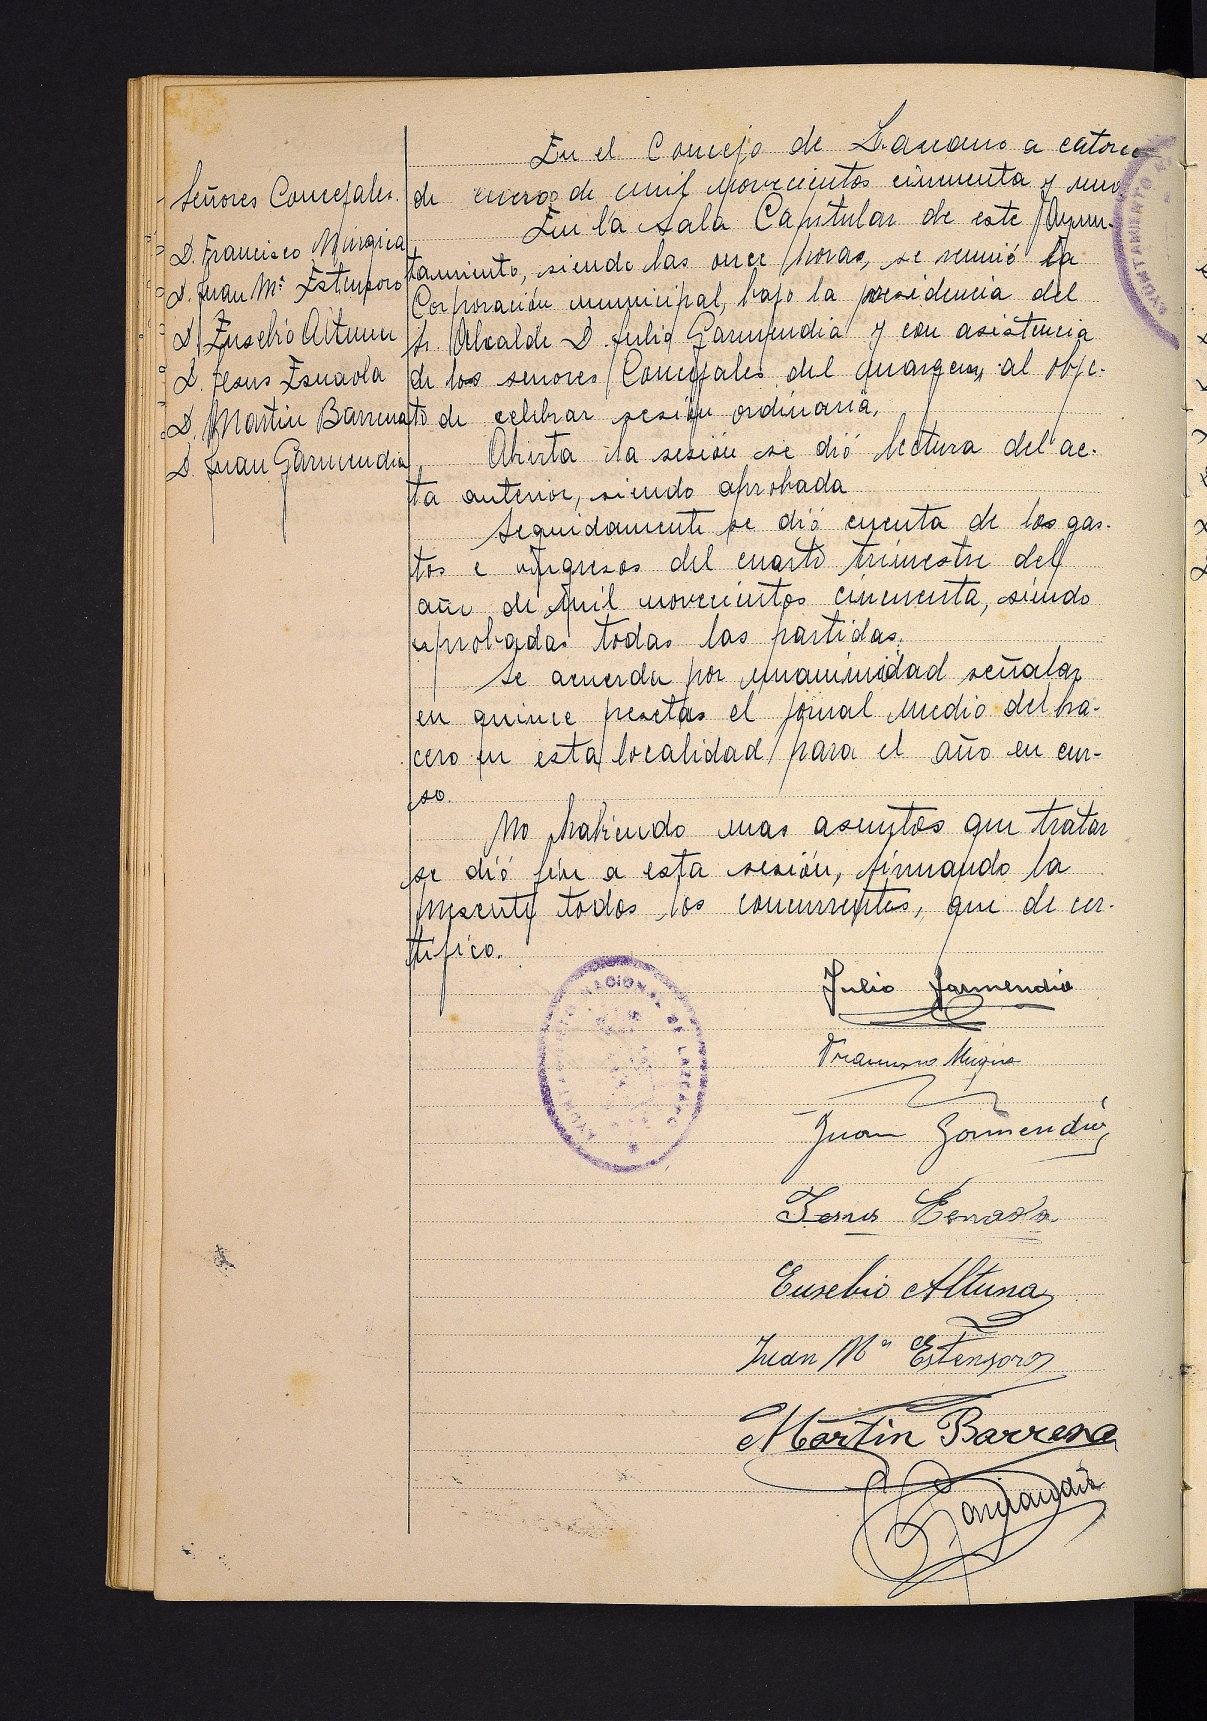 Señores Concejales.
D. Francisco Múgica
D. Juan Mª Estensoro
D. Eusebio Altuna
D. Jesus Esnaola
D. Martin Barrena
D. Juan Garmendia
En el Concejo de Lazcano a catorce
de enero de mil novecientos cincuenta y uno
En la Sala Capitular de este Ayun-
tamiento, siendo las once horas, se reunió la
Corporación municipal, bajo la presidencia del
Sr. Alcalde D. Julio Garmendia y con asistencia
de los señores Concejales del margen, al obje-
to de celebrar sesión ordinaria.
Abierta la sesión se dió lectura del ac-
ta anterior, siendo aprobada
Seguidamente se dió cuenta de los gas-
tos e ingresos del cuarto trimestre del
año de mil novecientos cincuenta, siendo
aprobadas todas las partidas.
Se acuerda por unanimidad señalar
en quince pesetas el jornal medio del bra-
cero en esta localidad para el año en cur-
so.
No habiendo mas asuntos que tratar
se dió fin a esta sesión, firmando la
presente todos los concurrentes, que de cer-
tifico.
Julio Garmendia
Francisco Mugica
Juan Garmendia
Jesus Esnaola
Eusebio Altuna
Juan Mª Estensoro
Martin Barrena
AYUNTAMIENTO NACIONAL DE LAZCANO
AYUNTAMIENTO